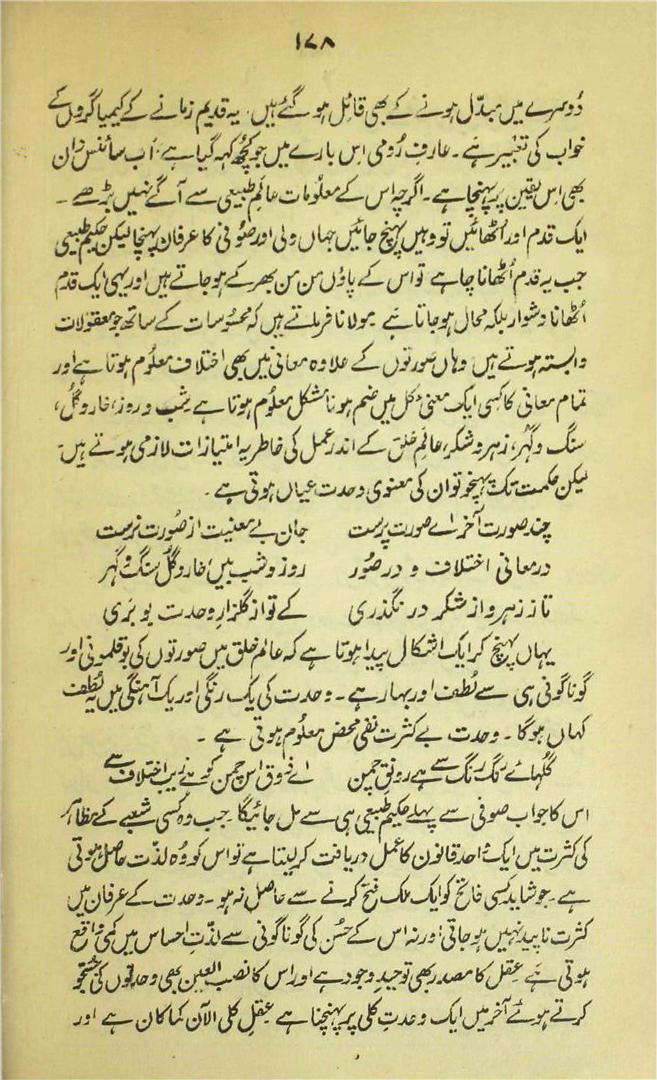 ۱۷۸
دُوسرے میں مبدّل ہونے کے بھی قائل ہو گئے ہیں۔ یہ قدیم زمانے کے کیمیا گروں کے
خواب کی تعبیر ہے۔ عارف رُومی اس بارے میں جو کچُھ کہہ گیا ہے، اَب سائنس دان
بھی اس یقین پر پہنچا ہے۔ اگرچہ اس کے معلُومات عالمِ طبیعی سے آگے نہیں بڑھے۔
ایک قدم اور اُٹھائیں تو وہیں پہنچ جائیں جہاں ولی اور صُوفی کا عرفان پہنچا لیکن حکیم طبیعی
جب یہ قدم اُٹھانا چاہے تو اس کے پاؤں من من بھر کے ہو جاتے ہیں اور یہی ایک قدم
اُٹھانا دشوار بلکہ محال ہو جاتا ہَے مولانا فرماتے ہیں کہ محسُوسات کے ساتھ جو معقولات
وابستہ ہوتے ہیں وہاں صُورتوں کے علاوہ معانی میں بھی اختلاف معلُوم ہوتا ہے اور
تمام معانی کا کسی ایک معنیٔ کل میں ضم ہونا مشکل معلُوم ہوتا ہے شب و روز، خار و گُل،
سنگ و گہُر، زہر و شکر، عالمِ خلق کے اندر عمل کی خاطر یہ امتیازات لازمی ہوتے ہیں۔
لیکن حکمت تک پہنچو تو ان کی معنوی وحدت عیاں ہوتی ہے۔
چند صورت آخر اے صورت پرست جان بے معنیت از صُورت نرست
در معانی اختلاف و در صُور روز و شب بیں، خار و گُل سنگ و گہُر
تا ز زہر و از شکر در نگذری کے تو از گلزارِ وحدت بو بَری
یہاں پہنچ کر ایک اشکال پیدا ہوتا ہے کہ عالم خلق میں صورتوں کی بوقلمونی اور
گوناگونی ہی سے لُطف اور بہار ہے۔ وحدت کی یک رنگی اور یک آہنگی میں یہ لُطف
کہاں ہوگا۔ وحدت بے کثرت نفی محض معلُوم ہوتی ہے۔
گلُہائے رنگ رنگ سے ہے رونقِ چمن اے ذوق اس چمن کو ہے زیب اختلاف سے
اس کا جواب صوفی سے پہلے حکیم طبیعی ہی سے مل جائیگا جب وہ کسی شعبے کے مظاہر
کی کثرت میں ایک واحد قانون کا عمل دریافت کر لیتا ہے تو اس کو وُہ لذّت حاصل ہوتی
ہے جو شاید کسی فاتح کو ایک ملک فتح کرنے سے حاصل نہ ہو۔ وحدت کے عرفان میں
کثرت ناپید نہیں ہو جاتی اور نہ اس کے حُسن کی گوناگونی سے لذّتِ احساس میں کمی واقع
ہوتی ہَے عقل کا مصدر بھی توحیدِ وجود ہے اور اس کا نصب العین بھی وحدتوں کی جُستجو
کرتے ہوئے آخر میں ایک وحدتِ کلی پر پہنچنا ہے عقلِ کلی الآن کما کان ہے اور